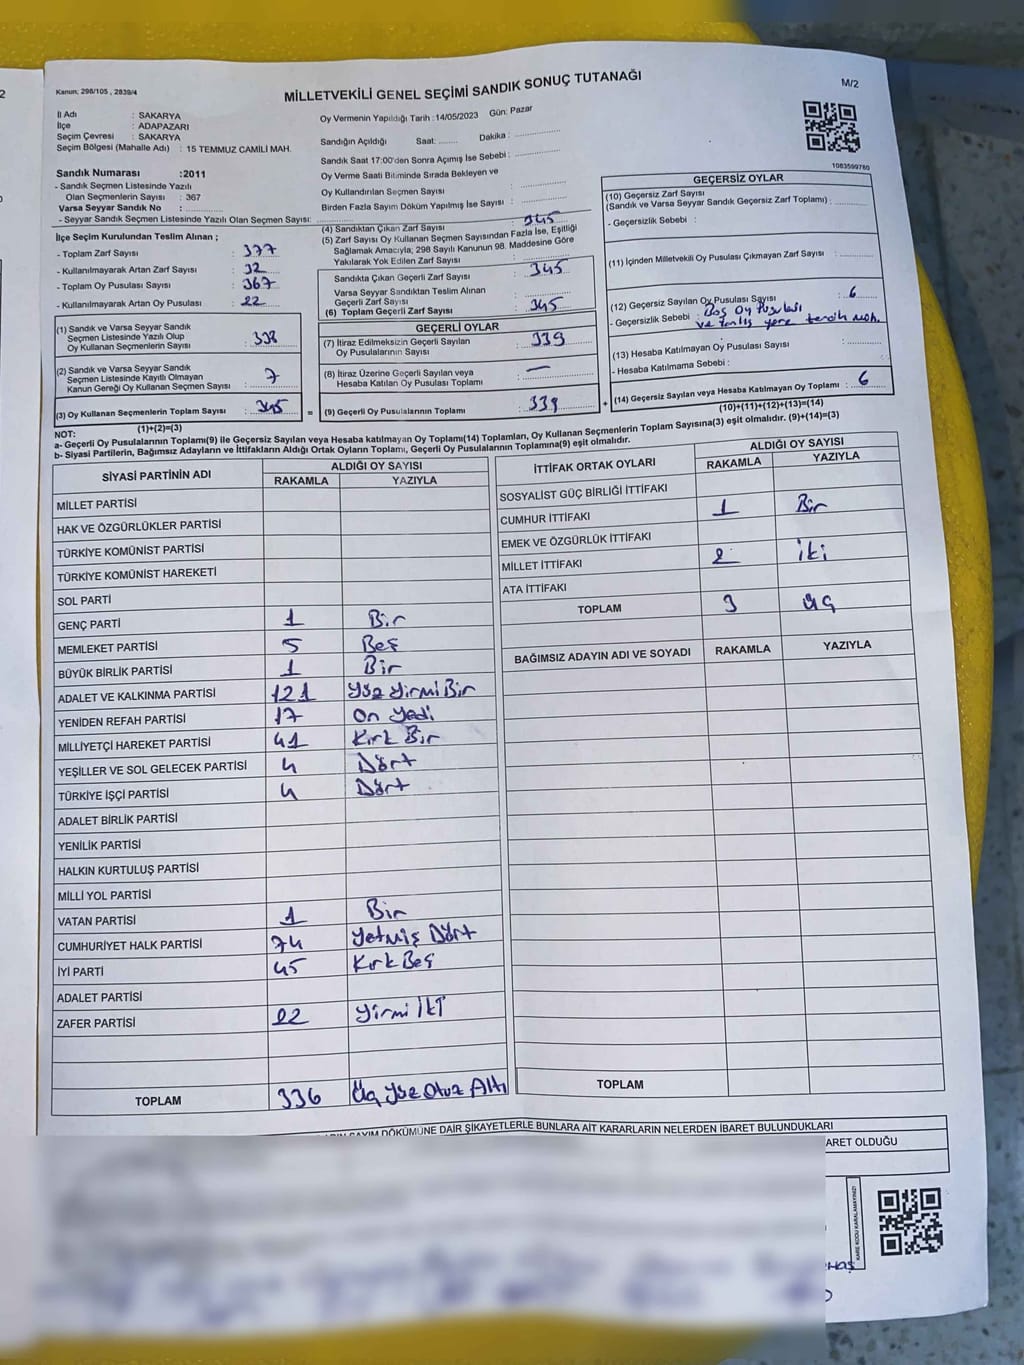 Kanun: 298/105 , 2839/4
MİLLETVEKİLİ GENEL SEÇİMİ SANDIK SONUÇ TUTANAĞI
M/2
İl Adı : SAKARYA
İlçe : ADAPAZARI
Seçim Çevresi : SAKARYA
Seçim Bölgesi (Mahalle Adı) : 15 TEMMUZ CAMİLİ MAH.
Sandık Numarası :2011
- Sandık Seçmen Listesinde Yazılı
Olan Seçmenlerin Sayısı : 367
Varsa Seyyar Sandık No :
- Seyyar Sandık Seçmen Listesinde Yazılı Olan Seçmen Sayısı:
Oy Vermenin Yapıldığı Tarih :14/05/2023 Gün: Pazar
Sandığın Açıldığı Saat: Dakika :
Sandık Saat 17:00'den Sonra Açımış İse Sebebi :
Oy Verme Saati Bitiminde Sırada Bekleyen ve
Oy Kullandırılan Seçmen Sayısı :
Birden Fazla Sayım Döküm Yapılmış İse Sayısı :
1083599780
İlçe Seçim Kurulundan Teslim Alınan ;
- Toplam Zarf Sayısı : 377
- Kullanılmayarak Artan Zarf Sayısı : 32
- Toplam Oy Pusulası Sayısı : 367
- Kullanılmayarak Artan Oy Pusulası : 22
(1) Sandık ve Varsa Seyyar Sandık
Seçmen Listesinde Yazılı Olup
Oy Kullanan Seçmenlerin Sayısı : 338
(2) Sandık ve Varsa Seyyar Sandık
Seçmen Listesinde Kayıtlı Olmayan
Kanun Gereği Oy Kullanan Seçmen Sayısı : 7
(3) Oy Kullanan Seçmenlerin Toplam Sayısı : 345
(1)+(2)=(3)
(4) Sandıktan Çıkan Zarf Sayısı : 345
(5) Zarf Sayısı Oy Kullanan Seçmen Sayısından Fazla İse, Eşitliği
Sağlamak Amacıyla, 298 Sayılı Kanunun 98. Maddesine Göre
Yakılarak Yok Edilen Zarf Sayısı :
Sandıkta Çıkan Geçerli Zarf Sayısı : 345
Varsa Seyyar Sandıktan Teslim Alınan
Geçerli Zarf Sayısı :
(6) Toplam Geçerli Zarf Sayısı : 345
GEÇERLİ OYLAR
(7) İtiraz Edilmeksizin Geçerli Sayılan
Oy Pusulalarının Sayısı : 339
(8) İtiraz Üzerine Geçerli Sayılan veya
Hesaba Katılan Oy Pusulası Toplamı : —
= (9) Geçerli Oy Pusulalarının Toplamı : 339
GEÇERSİZ OYLAR
(10) Geçersiz Zarf Sayısı
(Sandık ve Varsa Seyyar Sandık Geçersiz Zarf Toplamı) :
- Geçersizlik Sebebi :
(11) İçinden Milletvekili Oy Pusulası Çıkmayan Zarf Sayısı :
(12) Geçersiz Sayılan Oy Pusulası Sayısı : 6
- Geçersizlik Sebebi : Boş Oy Pusulası
ve yanlış yere tercih
(13) Hesaba Katılmayan Oy Pusulası Sayısı :
- Hesaba Katılmama Sebebi :
+ (14) Geçersiz Sayılan veya Hesaba Katılmayan Oy Toplamı : 6
(10)+(11)+(12)+(13)=(14)
NOT:
a- Geçerli Oy Pusulalarının Toplamı(9) ile Geçersiz Sayılan veya Hesaba katılmayan Oy Toplamı(14) Toplamları, Oy Kullanan Seçmenlerin Toplam Sayısına(3) eşit olmalıdır. (9)+(14)=(3)
b- Siyasi Partilerin, Bağımsız Adayların ve İttifakların Aldığı Ortak Oyların Toplamı, Geçerli Oy Pusulalarının Toplamına(9) eşit olmalıdır.
SİYASİ PARTİNİN ADI ALDIĞI OY SAYISI
RAKAMLA YAZIYLA
MİLLET PARTİSİ
HAK VE ÖZGÜRLÜKLER PARTİSİ
TÜRKİYE KOMÜNİST PARTİSİ
TÜRKİYE KOMÜNİST HAREKETİ
SOL PARTİ
GENÇ PARTİ 1 Bir
MEMLEKET PARTİSİ 5 Beş
BÜYÜK BİRLİK PARTİSİ 1 Bir
ADALET VE KALKINMA PARTİSİ 121 Yüz Yirmi Bir
YENİDEN REFAH PARTİSİ 17 On Yedi
MİLLİYETÇİ HAREKET PARTİSİ 41 Kırk Bir
YEŞİLLER VE SOL GELECEK PARTİSİ 4 Dört
TÜRKİYE İŞÇİ PARTİSİ 4 Dört
ADALET BİRLİK PARTİSİ
YENİLİK PARTİSİ
HALKIN KURTULUŞ PARTİSİ
MİLLİ YOL PARTİSİ
VATAN PARTİSİ 1 Bir
CUMHURİYET HALK PARTİSİ 74 Yetmiş Dört
İYİ PARTİ 45 Kırk Beş
ADALET PARTİSİ
ZAFER PARTİSİ 22 Yirmi İki
TOPLAM 336 Üç Yüz Otuz Altı
İTTİFAK ORTAK OYLARI ALDIĞI OY SAYISI
RAKAMLA YAZIYLA
SOSYALİST GÜÇ BİRLİĞİ İTTİFAKI
CUMHUR İTTİFAKI 1 Bir
EMEK VE ÖZGÜRLÜK İTTİFAKI
MİLLET İTTİFAKI 2 İki
ATA İTTİFAKI
TOPLAM 3 Üç
BAĞIMSIZ ADAYIN ADI VE SOYADI RAKAMLA YAZIYLA
TOPLAM
SAYIM DÖKÜMÜNE DAİR ŞİKAYETLERLE BUNLARA AİT KARARLARIN NELERDEN İBARET BULUNDUKLARI
ARET OLDUĞU
KARE KODU KARALAMAYINIZ!